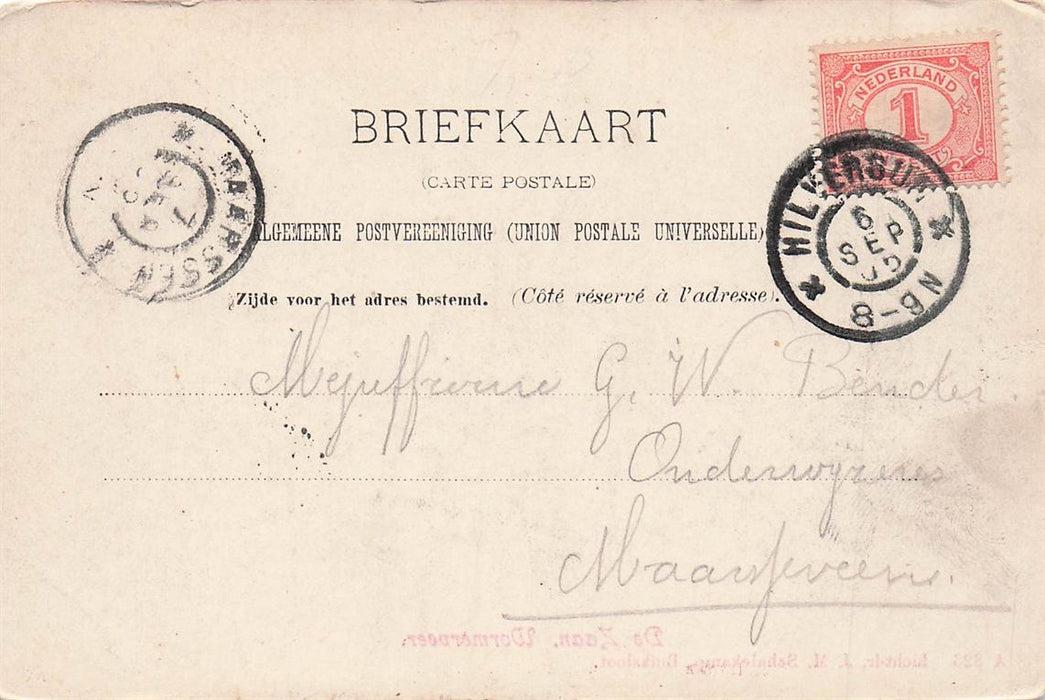 NEDERLAND
1
BRIEFKAART
(CARTE POSTALE)
ALGEMEENE POSTVEREENIGING (UNION POSTALE UNIVERSELLE)
Zijde voor het adres bestemd. (Côté réservé à l'adresse).
HILVERSUM
6
SEP
8-9N
MAARSSEN
7
Mejuffrouw G. W. Bender.
Onderwijzeres
Maarsseveen.
De Zaan, Wormerveer.
Lichtdr. J. M. Schalekamp, Buiksloot.